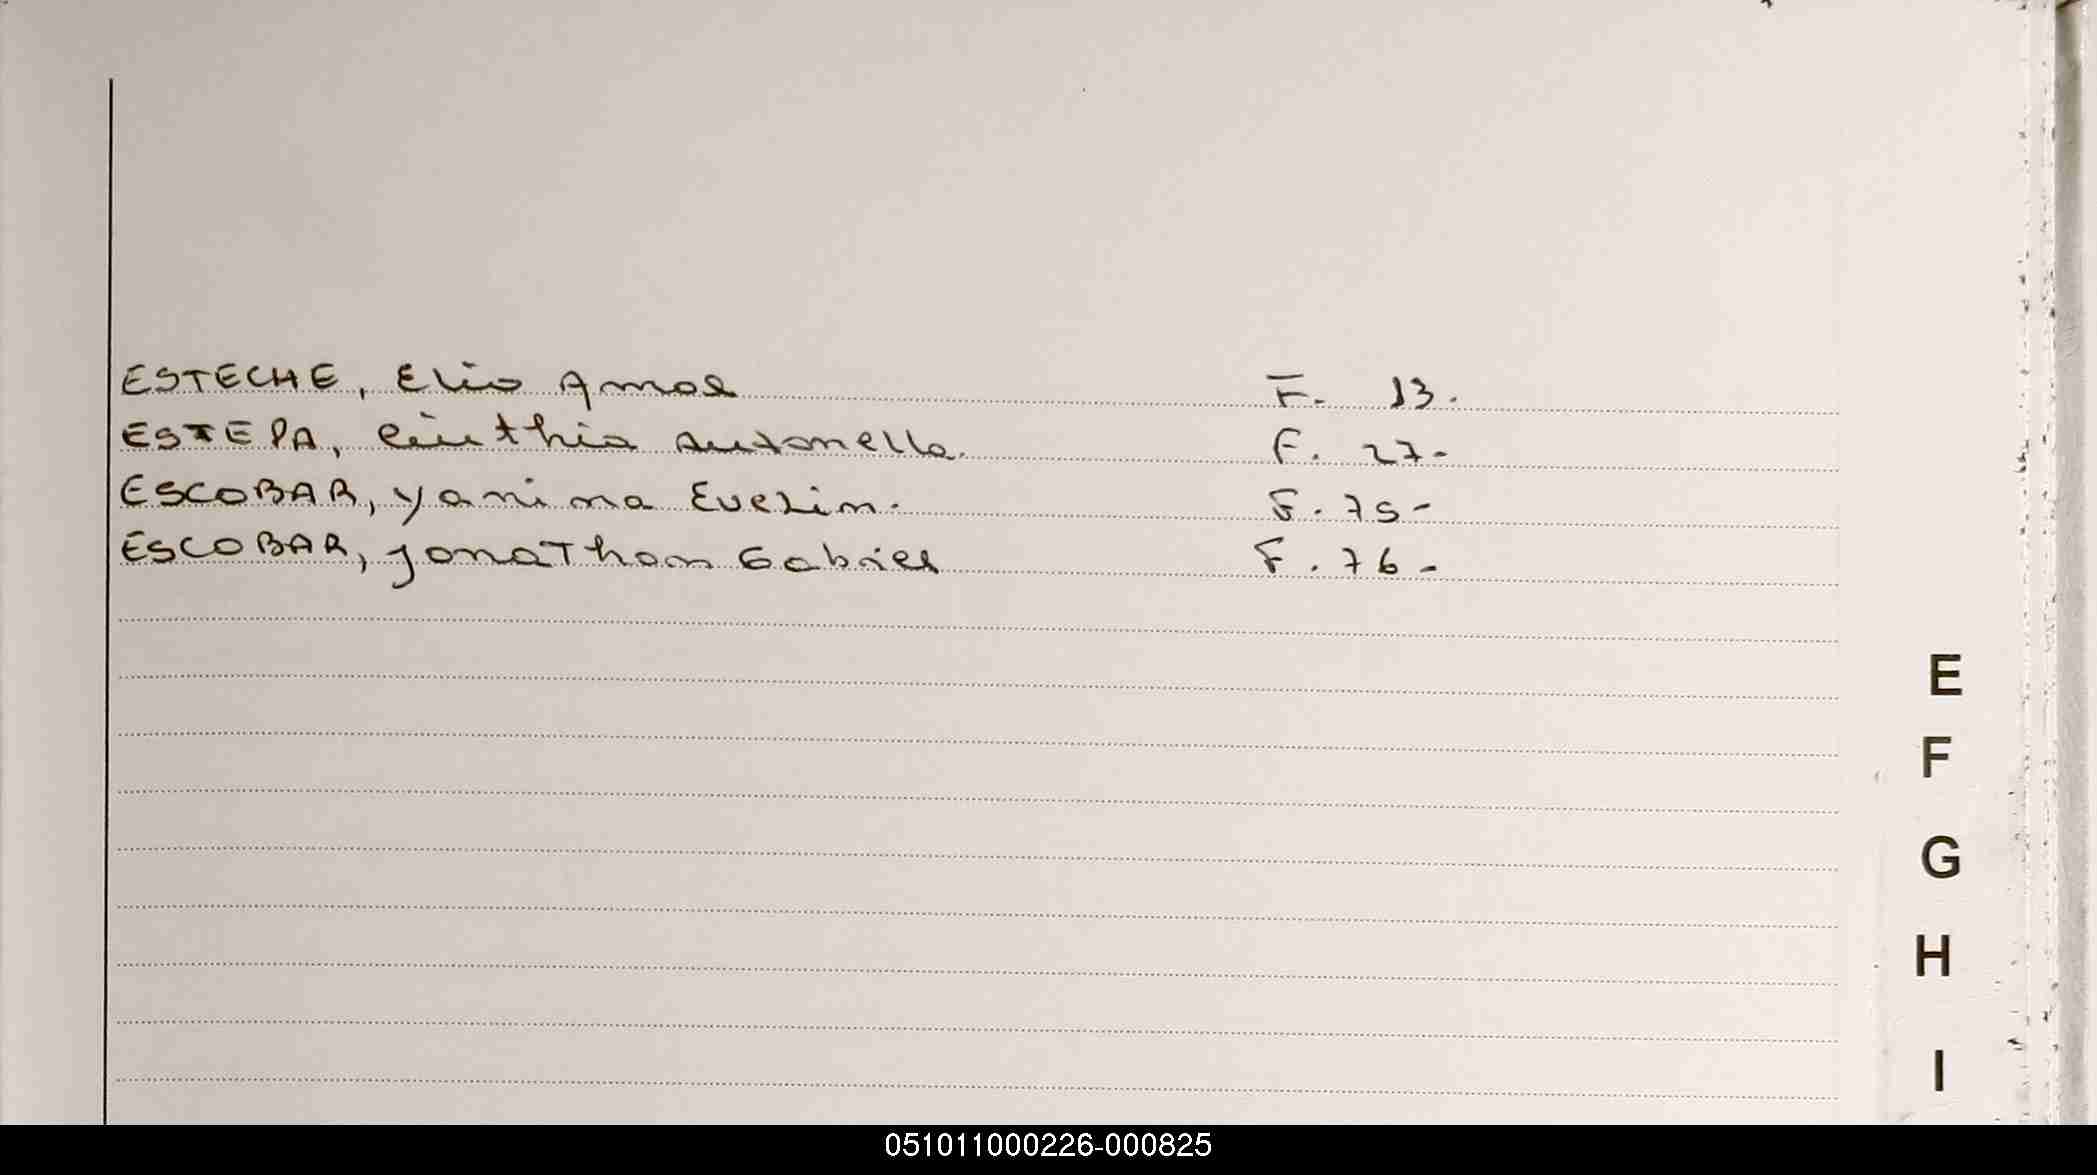 ESTECHE, Elio Amos F. 13.
ESTEPA, Cinthia Antonella. F. 27-
ESCOBAR, Yanina Evelin. F. 75-
ESCOBAR, Jonathan Gabriel F. 76-
E
F
G
H
I
051011000226-000825